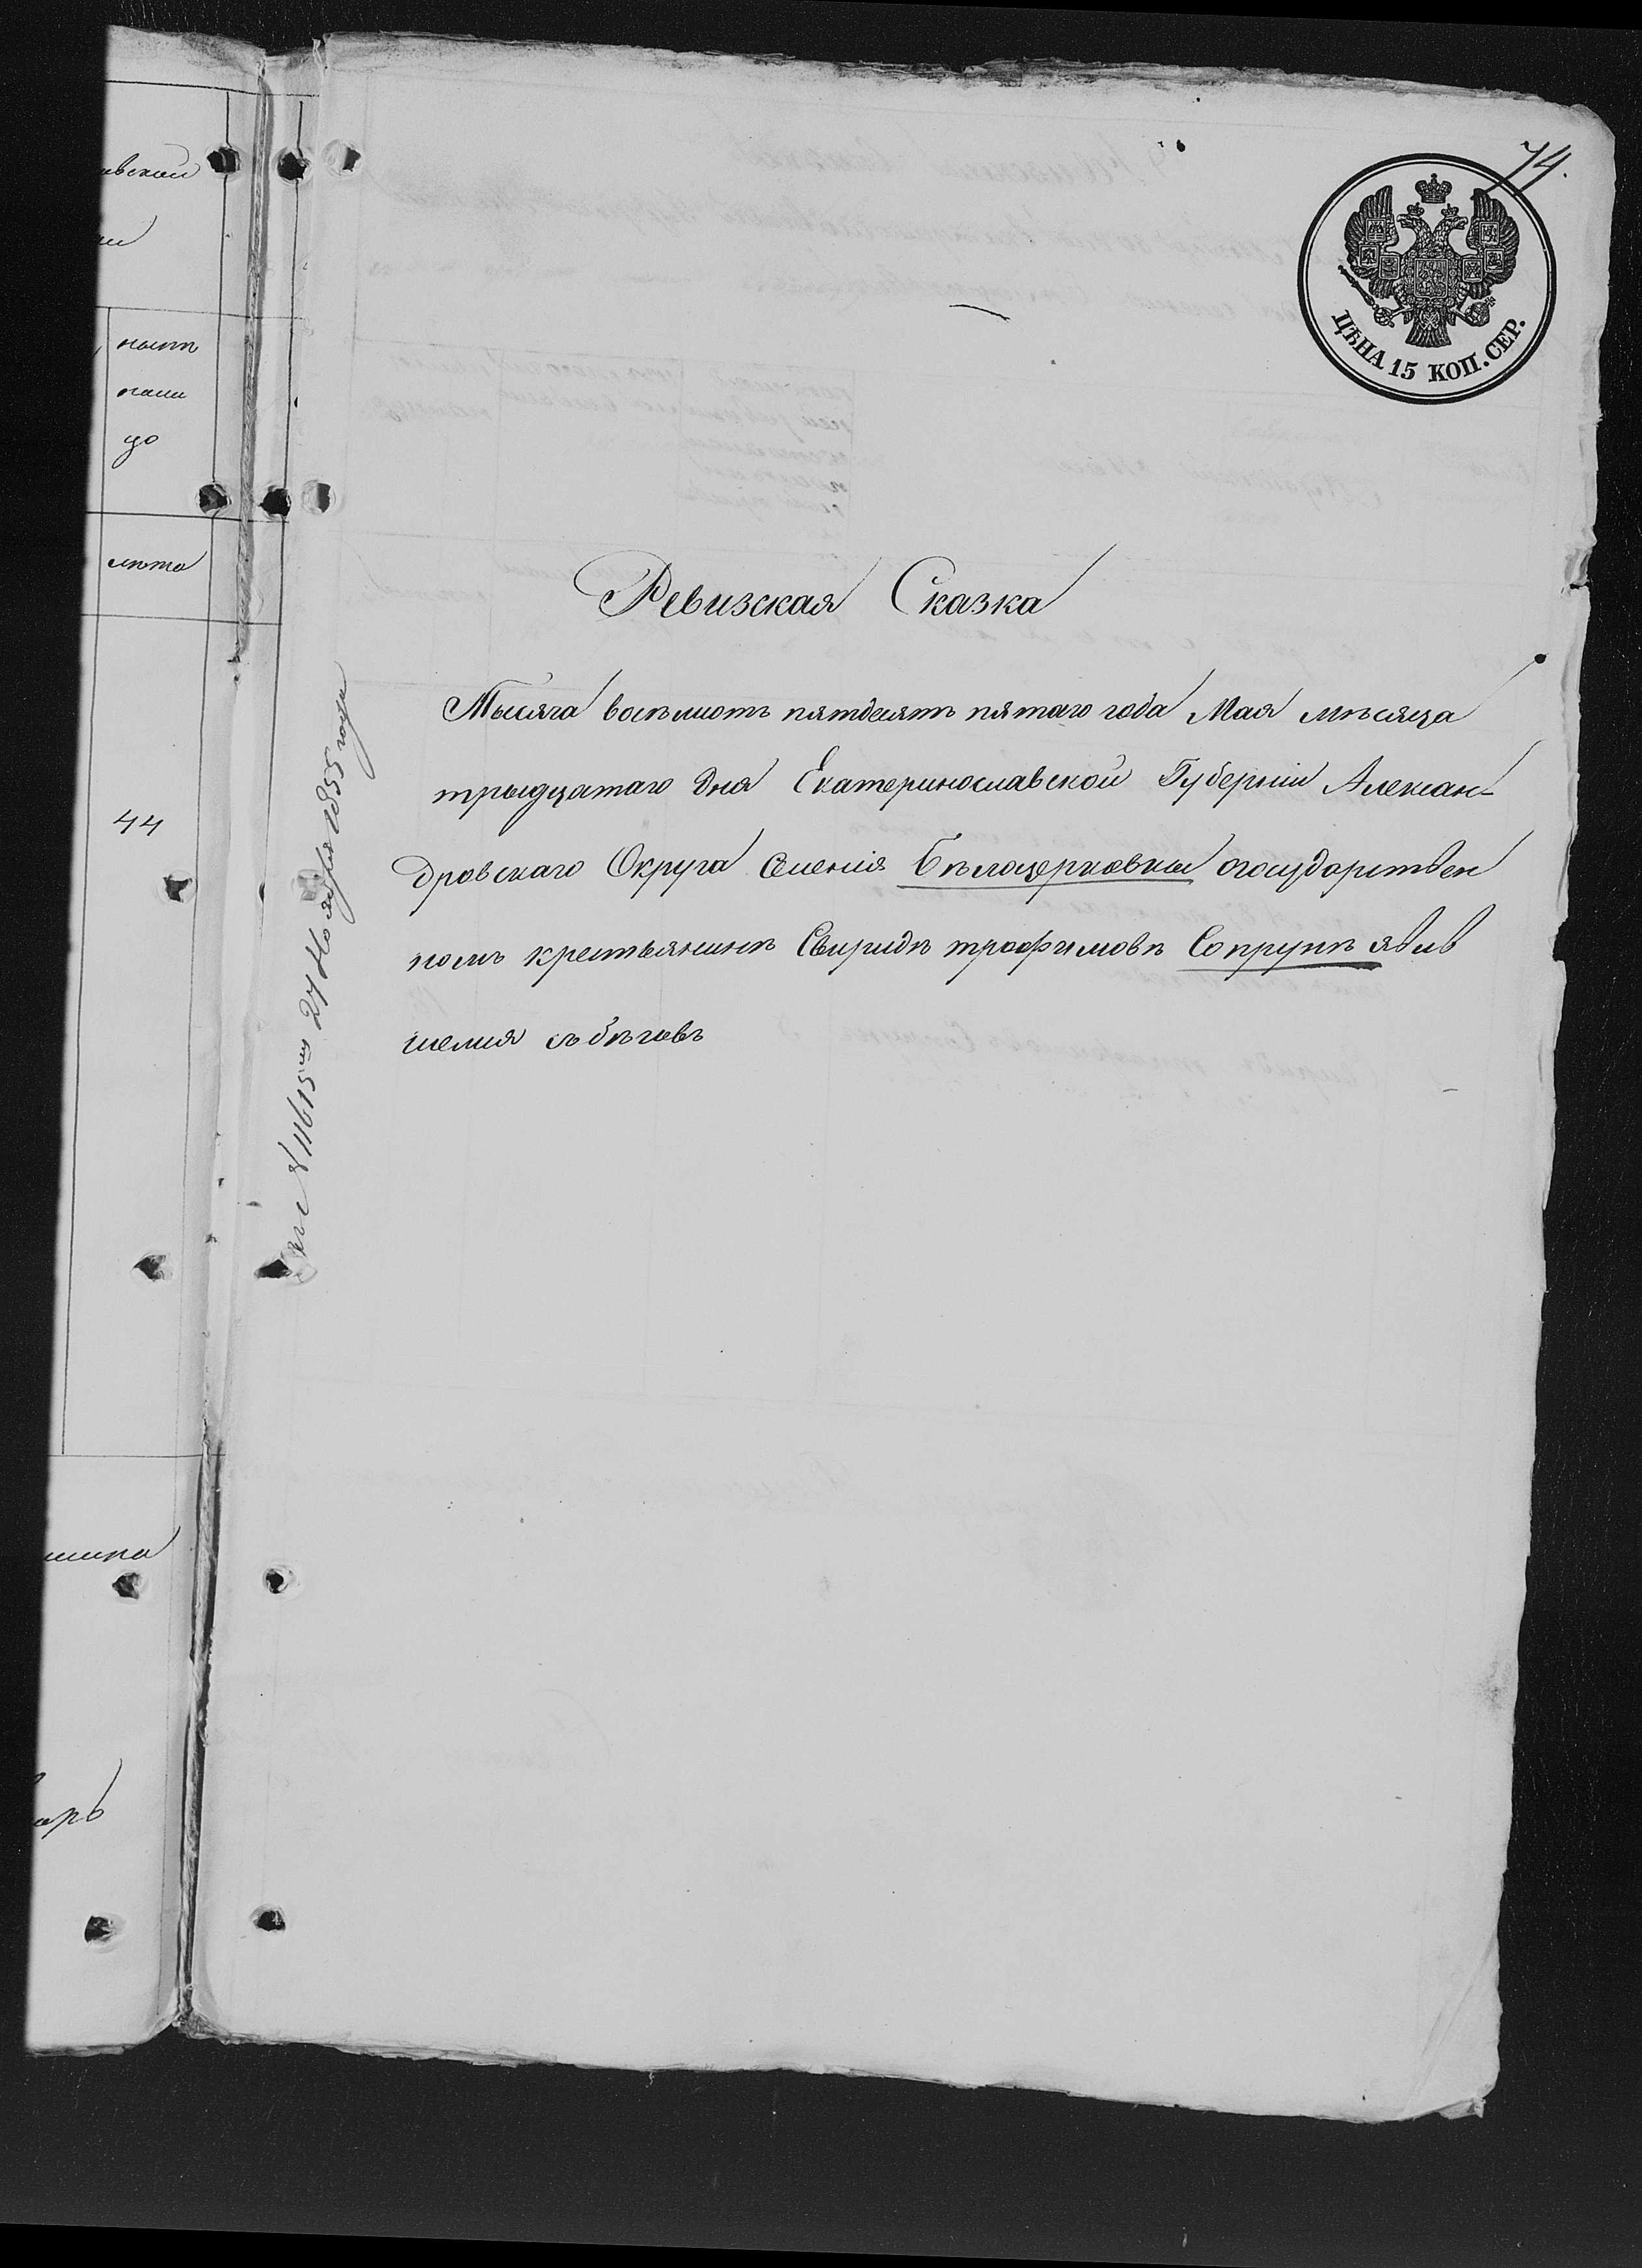 74.
ЦѢНА 15 КОП. СЕР.
Ревизская Сказка
Тысяча восѣмотъ пятдесятъ пятаго года Мая мѣсяца
трыдцатаго дня Екатеринославской Губерніи Алексан-
дровскаго Округа Сѣленія Бѣлоцерковки огосударствен
номъ крестьянинѣ Свиридѣ трофимовѣ Сопрунѣ явив
шемся съ бѣговъ
№ 11615 27 Ноября 1855 года
ность
лѣта
44